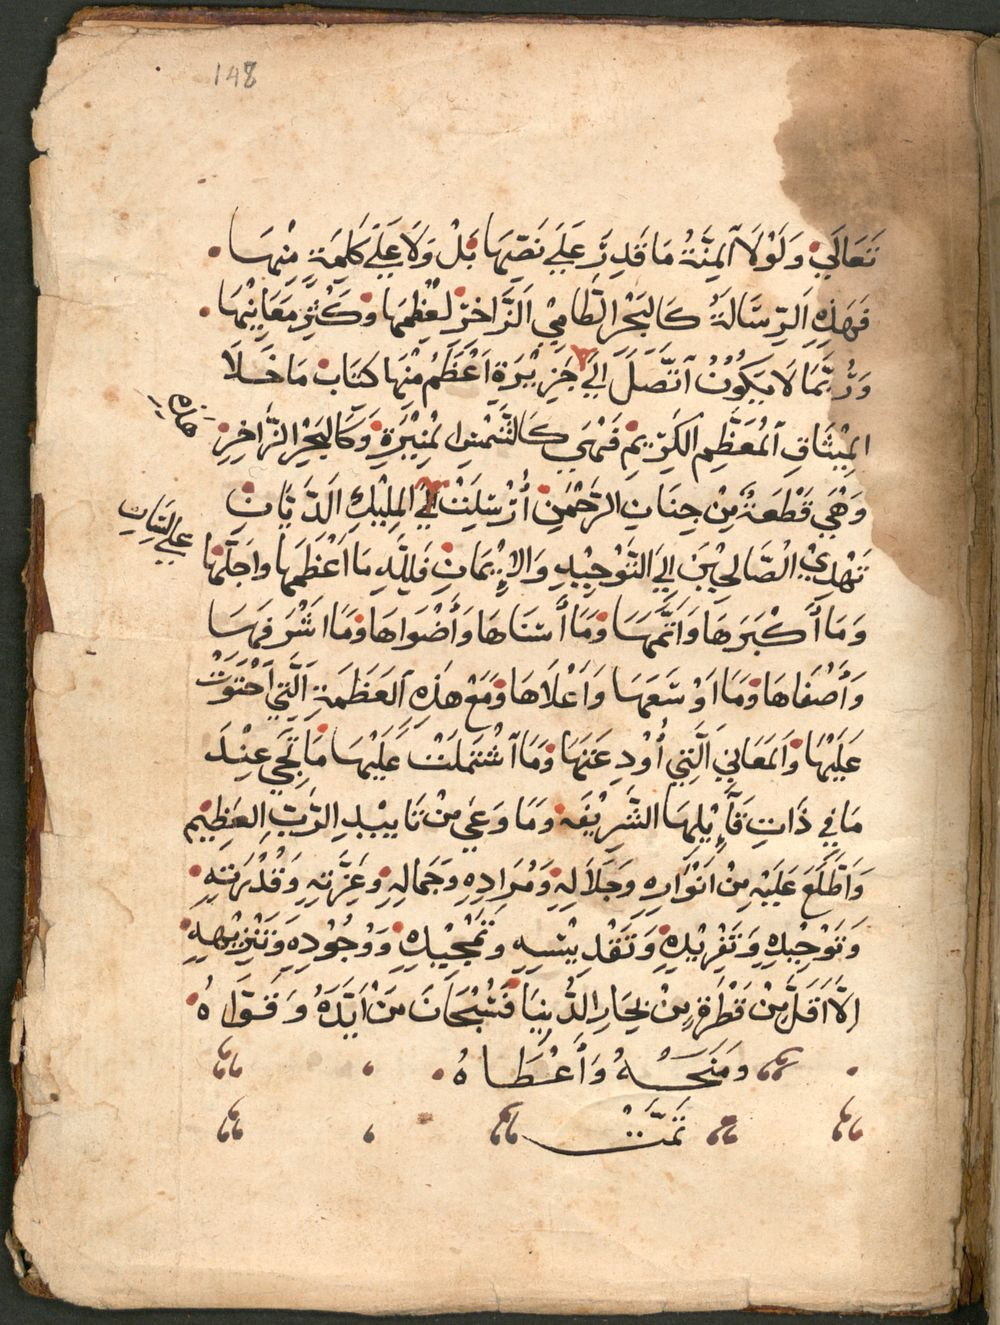 148
تَعَالَي وَلَوْلَا ٱلمِنَّةُ مَا قَدِرَ عَلَي نَصِّهَا بَلْ وَلَا عَلَي كَلِمَةٍ مِنْهَا
فَهَذِهِ الرِّسَالَةُ كَالبَحْرِ الطَّامِيْ الزَّاخِرِ لعُظْمِهَا وَكَثْرِ مَعَانِيْهَا
وَرُبَّمَا لَا يَكُوْنُ ٱتَّصَلَ اِلَي جَزِيْرَةٍ اَعْظَمُ مِنْهَا كتَاب مَا خَلَا
المِيْثَاقِ ٱلمُعَظَّمِ الكَرِيْمِ فَهْيَ كَالشَّمْسِ المُنِيْرَةِ وَكَالبَحْرِ الزَّاخِرِ
هذه
وَهْيَ قَطْعَةٌ مِنْ جِنَانِ الرَّحْمٰنِ أُرْسِلَتْ اِلَي المَلِيْكِ الدَّيَّانِ
علي السان
تَهْدِيْ الصَّالِحِيْنَ اِلَي التَّوْحِيْدِ وَالاِيْمَانِ فَلِلَّهِ مَا اَعْظَمَهَا وَاجَلَّهَا
وَمَا أَكْبَرَهَا وَاَتَمَّهَا وَمَا أَسْنَاهَا وَأَضْوَاهَا وَمَا اشْرَفَهَا
وَأَصْفَاهَا وَمَا اَوْسَعَهَا وَاَعْلَاهَا وَمَعْ هَذِهِ ٱلعَظَمَةِ الَّتِي ٱحْتَوَتْ
عَلَيْهَا وَٱلمَعَانِي الَّتِي أُوْدِعَتْهَا وَمَا ٱشْتَمَلَتْ عَلَيْهَا مَا تَجِي عِنْدَ
مَا فِي ذَاتِ قَآئِلِهَا الشَّرِيْفَه وَمَا وَعَي مِنْ تَايِيْدِ الرَّبِّ العَظِيْم
وَٱطَّلَعَ عَلَيْهِ مِنْ اَنْوَارِهِ وَجَلَالِهِ وَمُرَادِهِ وَجَمَالِهِ وَعِزَّتِهِ وَقُدْرَتِهِ
وَتَوْحِيْدِهِ وَتَفْرِيْدِهِ وَتَقْدِيْسِهِ وَتَمْجِيْدِهِ وَوُجُوْدِهِ وَتَنْزِيْهِهِ
اِلَّا اَقَلَّ مِنْ قَطْرَةٍ مِنْ بِحَارِ الدُّنْيَا فَسُبْحَانَ مَنْ اَيَّدَهُ وَقَوَّاهُ
وَمَنَحَهُ وَأَعْطَاهُ
تَمَّتْ